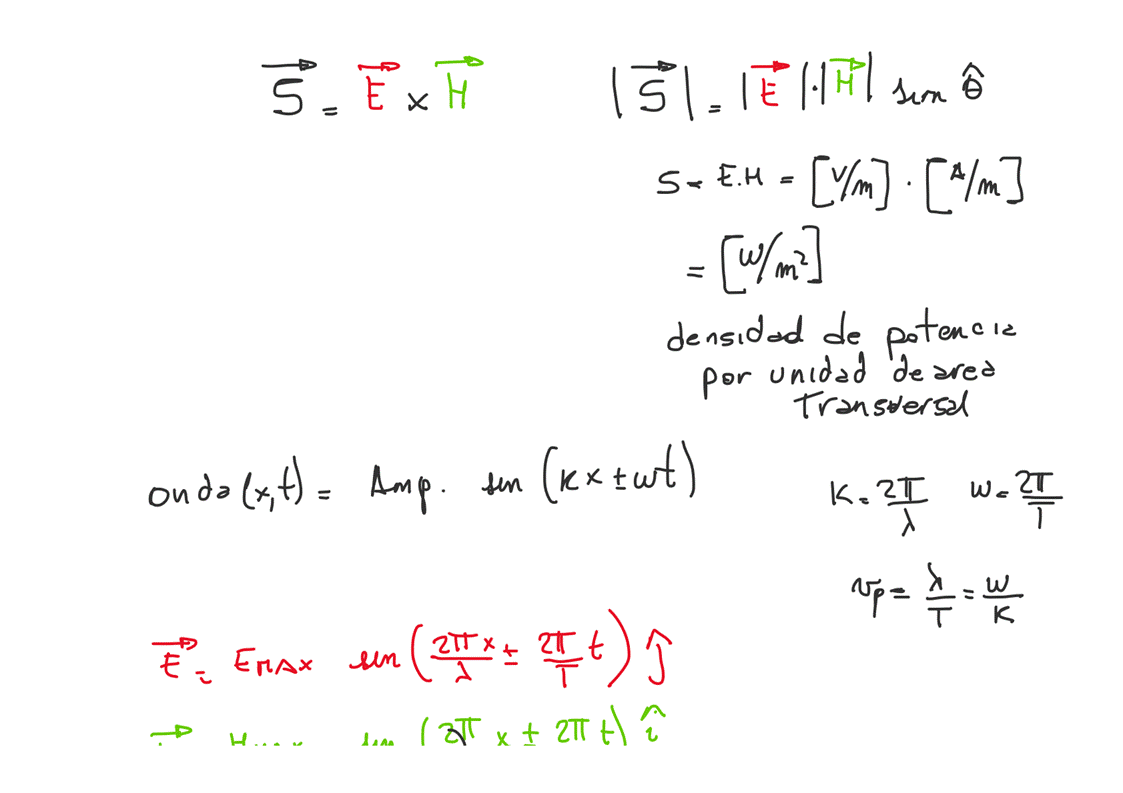 S⃗ = E⃗ x H⃗
|S⃗| = |E⃗|·|H⃗| sen θ̂
S = E.H = [V/m] · [A/m]
= [W/m²]
densidad de potencia
por unidad de area
Transversal
onda(x,t) = Amp. sen (kx ± wt)
K = 2π/λ w = 2π/T
vp = λ/T = w/K
E⃗ = EMAX sen (2πx/λ ± 2π/T t) ĵ
sen (2π x ± 2π t) î